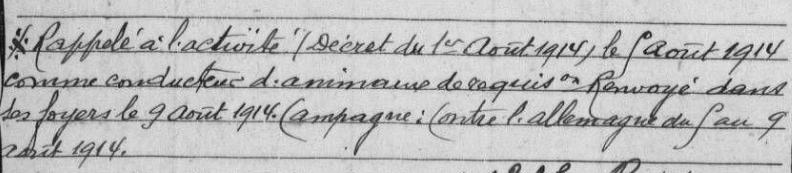 Rappelé à l'activité (Décret du 1er Août 1914) le 5 août 1914
comme conducteur d'animaux de requison Renvoyé dans
ses foyers le 9 août 1914. Campagne: Contre l'allemagne du 5 au 9
août 1914.